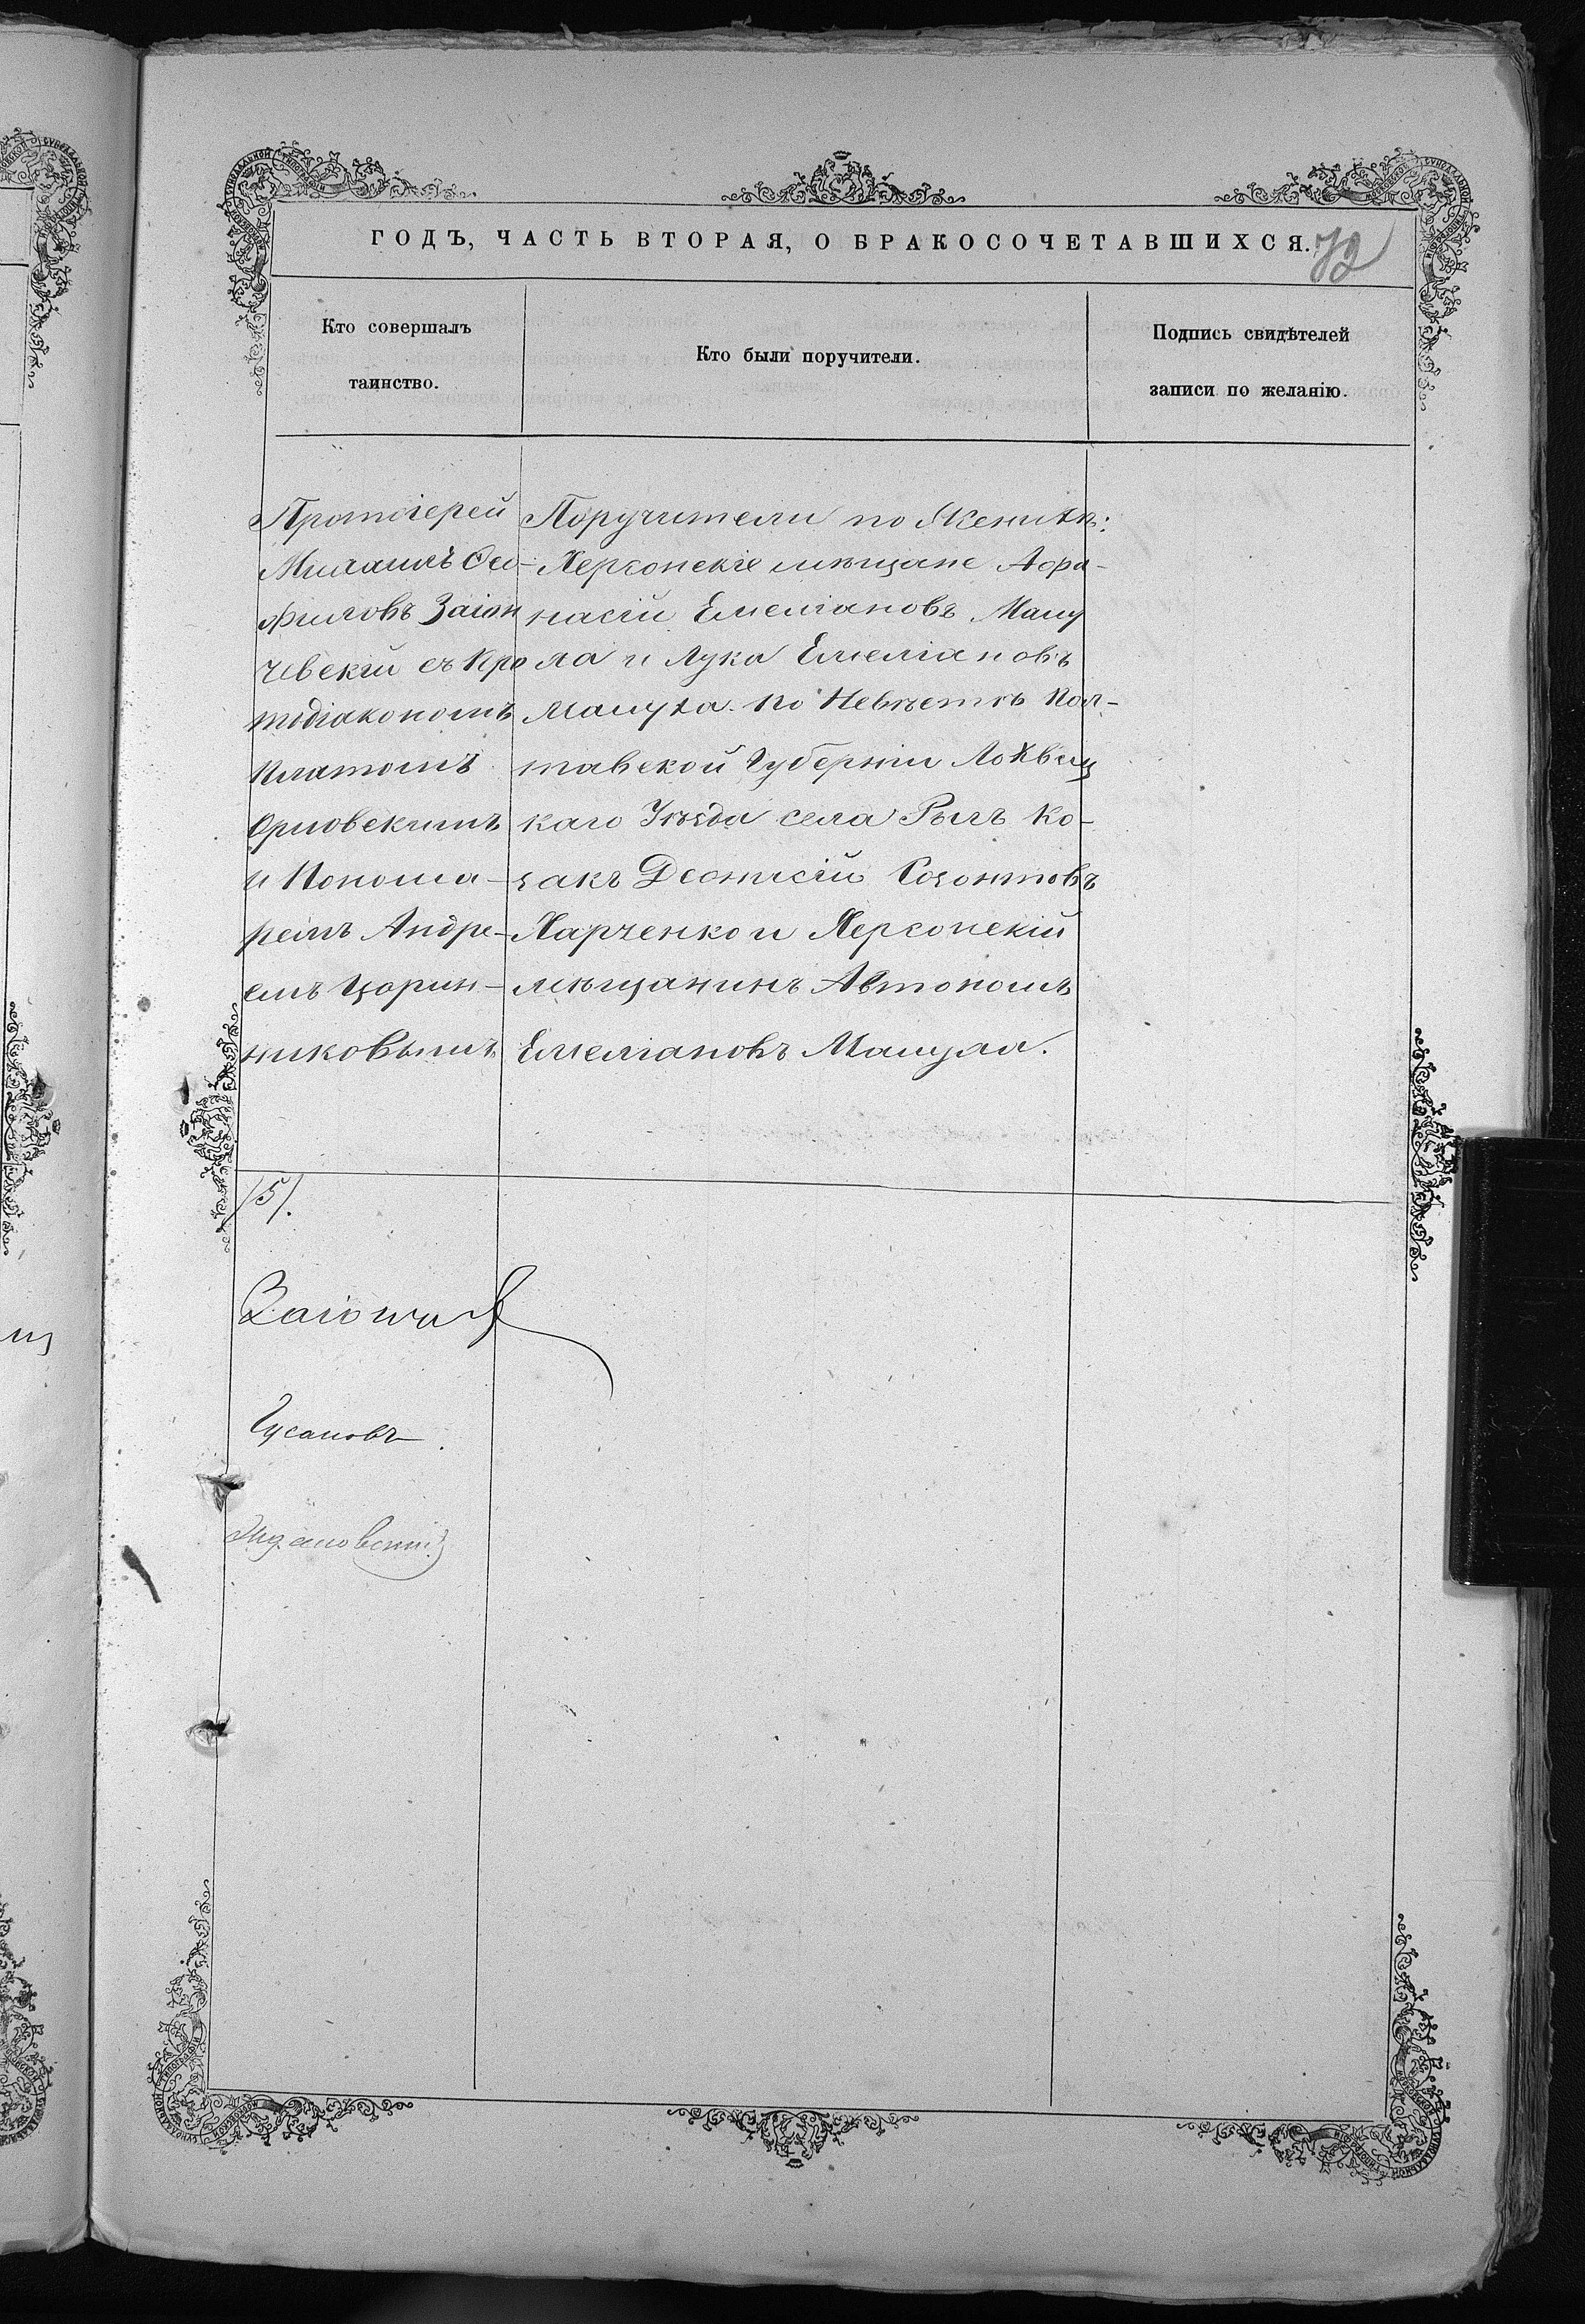 ГОДЪ, ЧАСТЬ ВТОРАЯ, О БРАКОСОЧЕТАВШИХСЯ. 72
Кто совершалъ
таинство.
Кто были поручители.
Подпись свидѣтелей
записи по желанію.
Протоіерей
Михаилъ Ѳео-
филовъ Заіон
чевскій съ про
тодіакономъ
Платономъ
Орловскимъ
и Понома-
ремъ Андре-
емъ Царин-
никовымъ
Поручители по Женихѣ:
Херсонскіе мѣщане Афа-
насій Емеліановъ Мацу
ла и Лука Емеліановъ
Мацула. по Невѣстѣ Пол-
тавской Губерніи Лохвиц
каго Уѣзда села Рыгъ Ко-
закъ Деонисій Созонтовъ
Харченко и Херсонскій
мѣщанинъ Автономъ
Емеліановъ Мацула.
/5/.
Гусановъ.